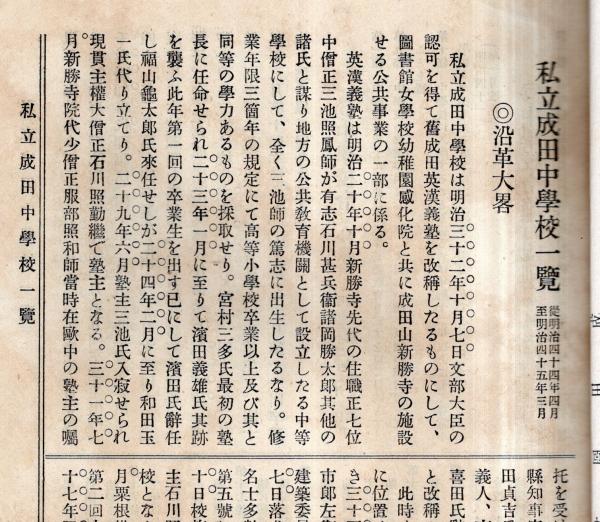 私立成田中學校一覽
從明治四十四年四月
至明治四十五年三月
◎沿革大畧
私立成田中學校は明治三十二年十月七日文部大臣の
認可を得て舊成田英漢義塾を改稱したるものにして、
圖書館女學校幼稚園感化院と共に成田山新勝寺の施設
せる公共事業の一部に係る。
英漢義塾は明治二十年十月新勝寺先代の住職正七位
中僧正三池照鳳師が有志石川甚兵衞諸岡勝太郎其他の
諸氏と謀り地方の公共敎育機關として設立したる中等
學校にして、全く三池師の篤志に出生したるなり。修
業年限三箇年の規定にて高等小學校卒業以上及び其と
同等の學力あるものを採取せり。宮村三多氏最初の塾
長に任命せられ二十三年一月に至りて濱田義雄氏其跡
を襲ふ此年第一回の卒業生を出す已にして濱田氏辭任
し福山龜太郎氏來任せしが二十四年二月に至り和田玉
一氏代り立てり。二十九年六月塾主三池氏入寂せられ
現貫主權大僧正石川照勤繼で塾主となる。三十一年七
月新勝寺院代少僧正服部照和師當時在歐中の塾主の囑
托を受
縣知事
田貞吉
義人、
喜田氏
と改稱
此時
に位置
き三十
市郎左
建築委員
七日落
名士多
第五號
十日校
主石川
校とな
月栗根
第二回
十七年
私立成田中學校一覽